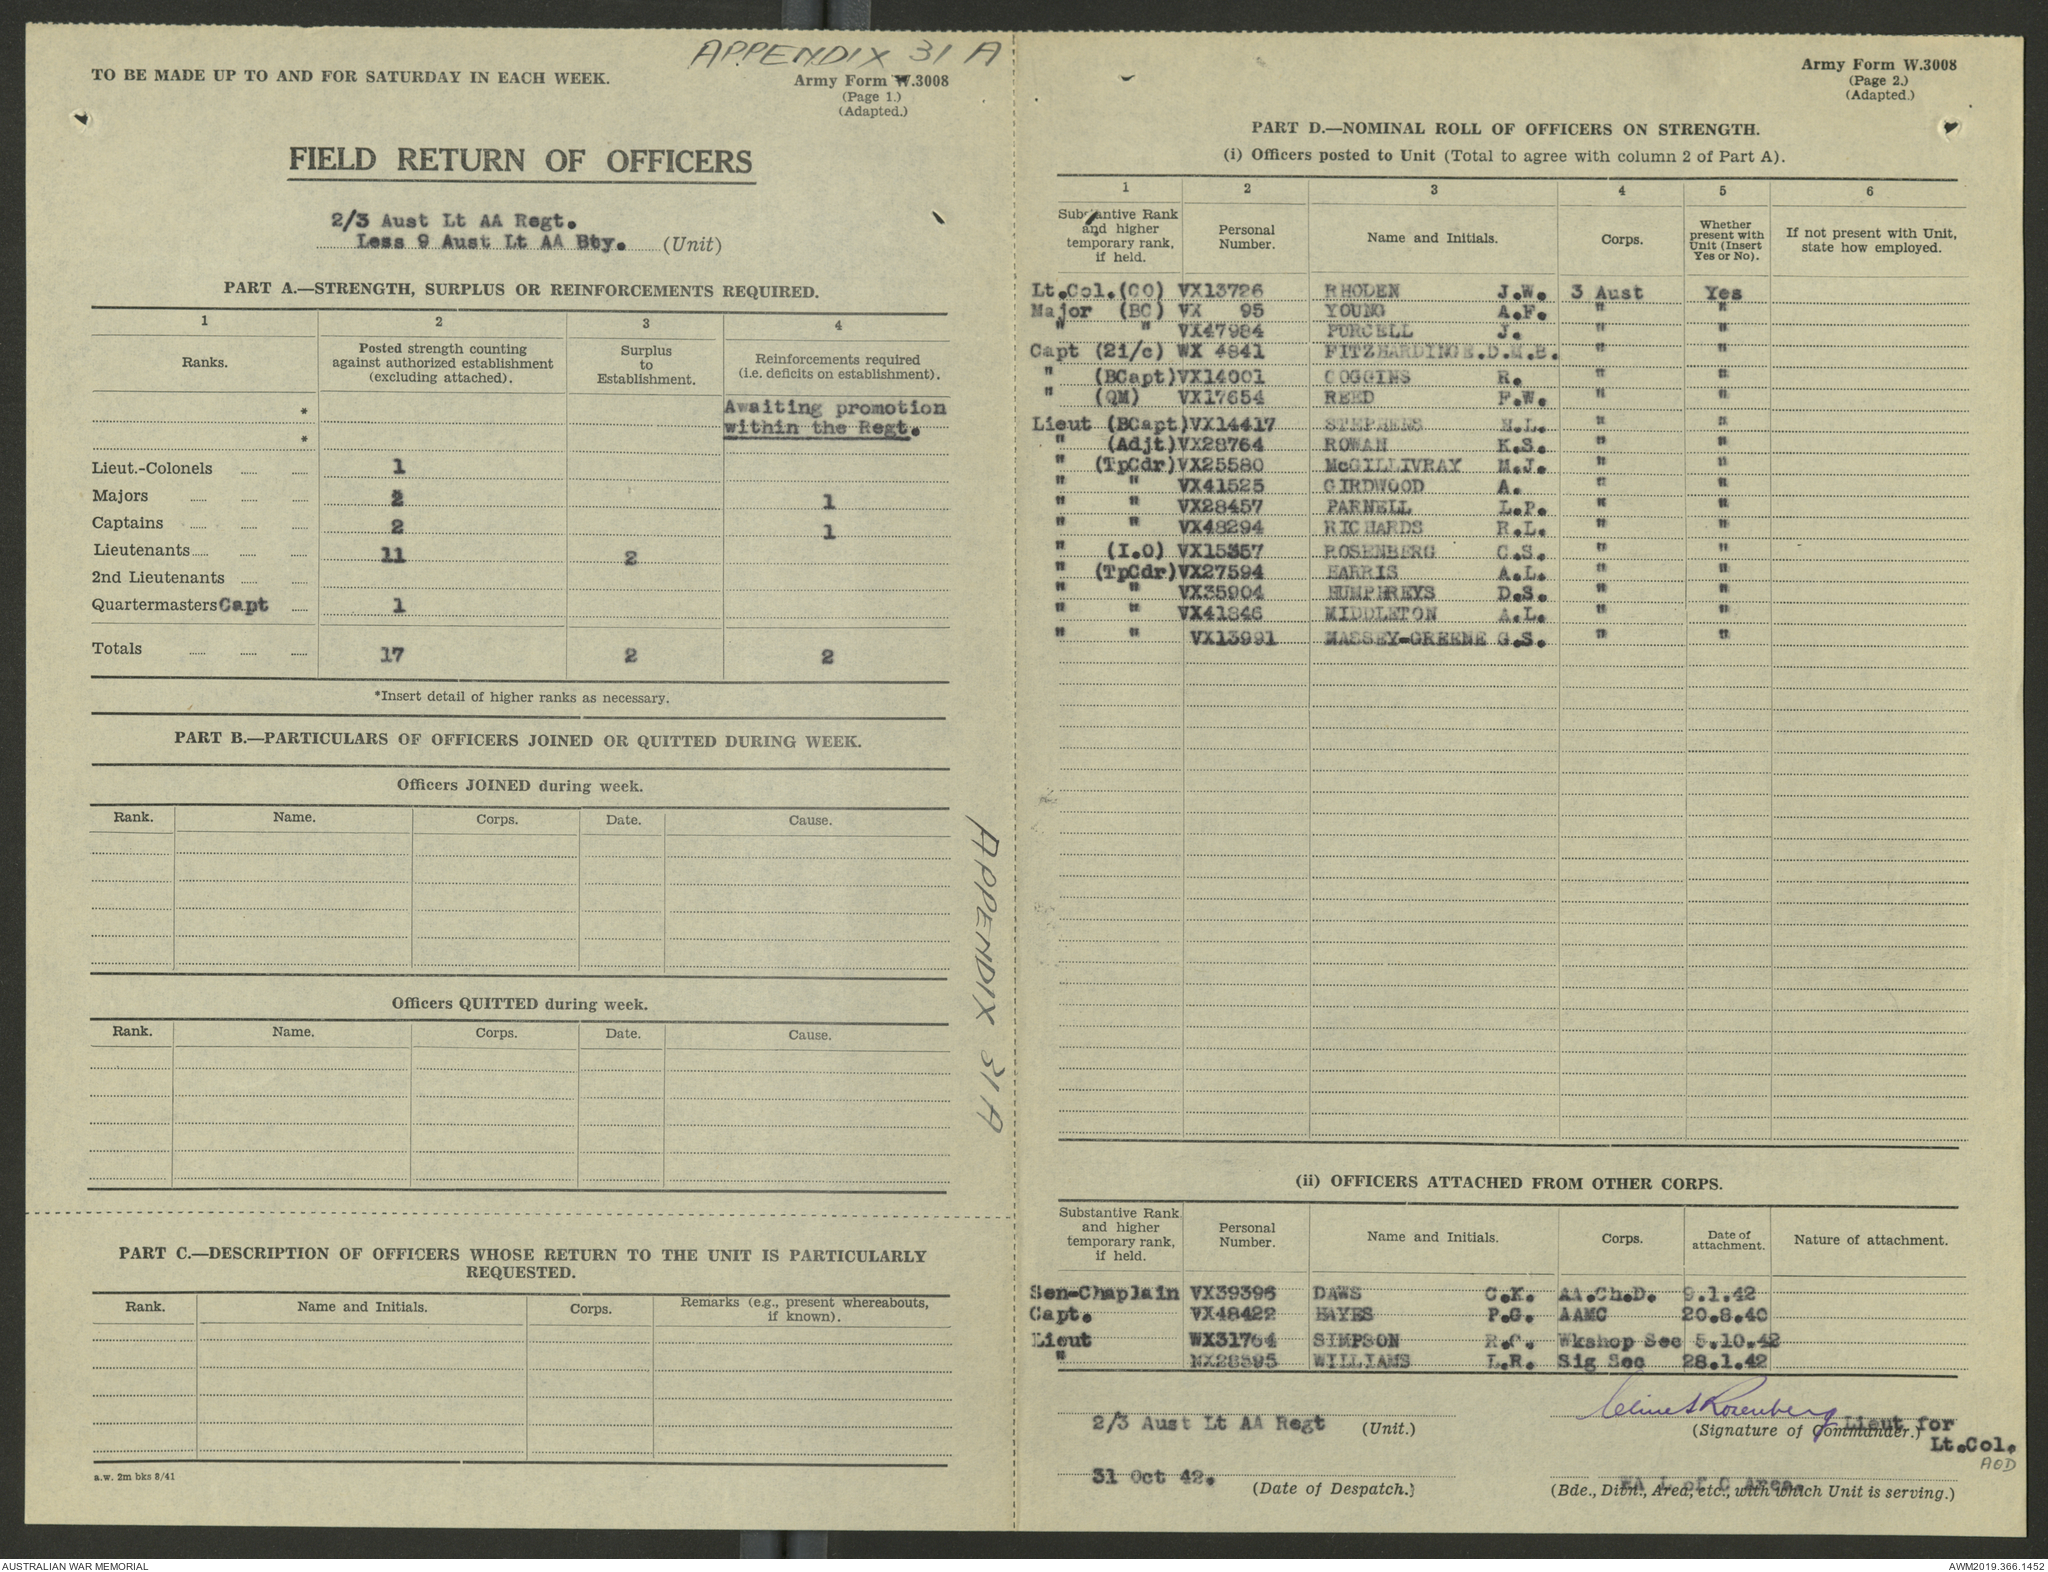 APPENDIX 31 A
TO BE MADE UP TO AND FOR SATURDAY IN EACH WEEK.
Army Form W.3008
(Page 1.)
(Adapted.)
FIELD RETURN OF OFFICERS
2/3 Aust Lt AA Regt.
Less 9 Aust Lt AA Bty. (Unit)
PART A.—STRENGTH, SURPLUS OR REINFORCEMENTS REQUIRED.
1 2 3 4
Ranks. Posted strength counting against authorized establishment (excluding attached). Surplus to Establishment. Reinforcements required (i.e. deficits on establishment).
* Awaiting promotion
* within the Regt.
Lieut.-Colonels 1
Majors 2 1
Captains 2 1
Lieutenants 11 2
2nd Lieutenants
Quartermasters Capt 1
Totals 17 2 2
*Insert detail of higher ranks as necessary.
PART B.—PARTICULARS OF OFFICERS JOINED OR QUITTED DURING WEEK.
Officers JOINED during week.
Rank. Name. Corps. Date. Cause.
Officers QUITTED during week.
Rank. Name. Corps. Date. Cause.
APPENDIX 31 A
PART C.—DESCRIPTION OF OFFICERS WHOSE RETURN TO THE UNIT IS PARTICULARLY
REQUESTED.
Rank. Name and Initials. Corps. Remarks (e.g., present whereabouts, if known).
a.w. 2m bks 8/41
Army Form W.3008
(Page 2.)
(Adapted.)
PART D.—NOMINAL ROLL OF OFFICERS ON STRENGTH.
(i) Officers posted to Unit (Total to agree with column 2 of Part A).
1 2 3 4 5 6
Substantive Rank and higher temporary rank, if held. Personal Number. Name and Initials. Corps. Whether present with Unit (Insert Yes or No). If not present with Unit, state how employed.
Lt.Col.(CO) VX13726 RHODEN J.W. 3 Aust Yes
Major (BC) VX 95 YOUNG A.F. " "
" " VX47984 PURCELL J. " "
Capt (2i/c) WX 4841 FITZHARDINGE.D.M.B. " "
" (BCapt) VX14001 GOGGINS R. " "
" (QM) VX17654 REED F.W. " "
Lieut (BCapt) VX14417 STEPHENS H.L. " "
" (Adjt) VX28764 ROWAN K.S. " "
" (TpCdr) VX25580 McGILLIVRAY M.J. " "
" " VX41525 GIRDWOOD A. " "
" " VX28457 PARNELL L.P. " "
" " VX48294 RICHARDS R.L. " "
" (I.O) VX15357 ROSENBERG C.S. " "
" (TpCdr) VX27594 HARRIS A.L. " "
" " VX35904 HUMPHREYS D.S. " "
" " VX41846 MIDDLETON A.L. " "
" " VX13991 MASSEY-GREENE G.S. " "
(ii) OFFICERS ATTACHED FROM OTHER CORPS.
Substantive Rank and higher temporary rank, if held. Personal Number. Name and Initials. Corps. Date of attachment. Nature of attachment.
Sen-Chaplain VX39396 DAWS C.K. AA.Ch.D. 9.1.42
Capt. VX48422 HAYES P.G. AAMC 20.8.40
Lieut WX31764 SIMPSON R.C. Wkshop Sec 5.10.42
" NX28595 WILLIAMS L.R. Sig Sec 28.1.42
2/3 Aust Lt AA Regt (Unit.)
Clive S Rosenberg Lieut for
(Signature of Commander.) Lt.Col.
AOD
31 Oct 42. (Date of Despatch.)
L of C Area.
(Bde., Divn., Area, etc., with which Unit is serving.)
AUSTRALIAN WAR MEMORIAL
AWM2019.366.1452